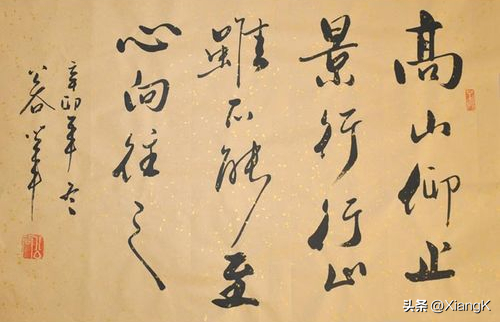 高山仰止
景行行止
雖不能至
心向往之
辛卯年冬
头条 @XiangK